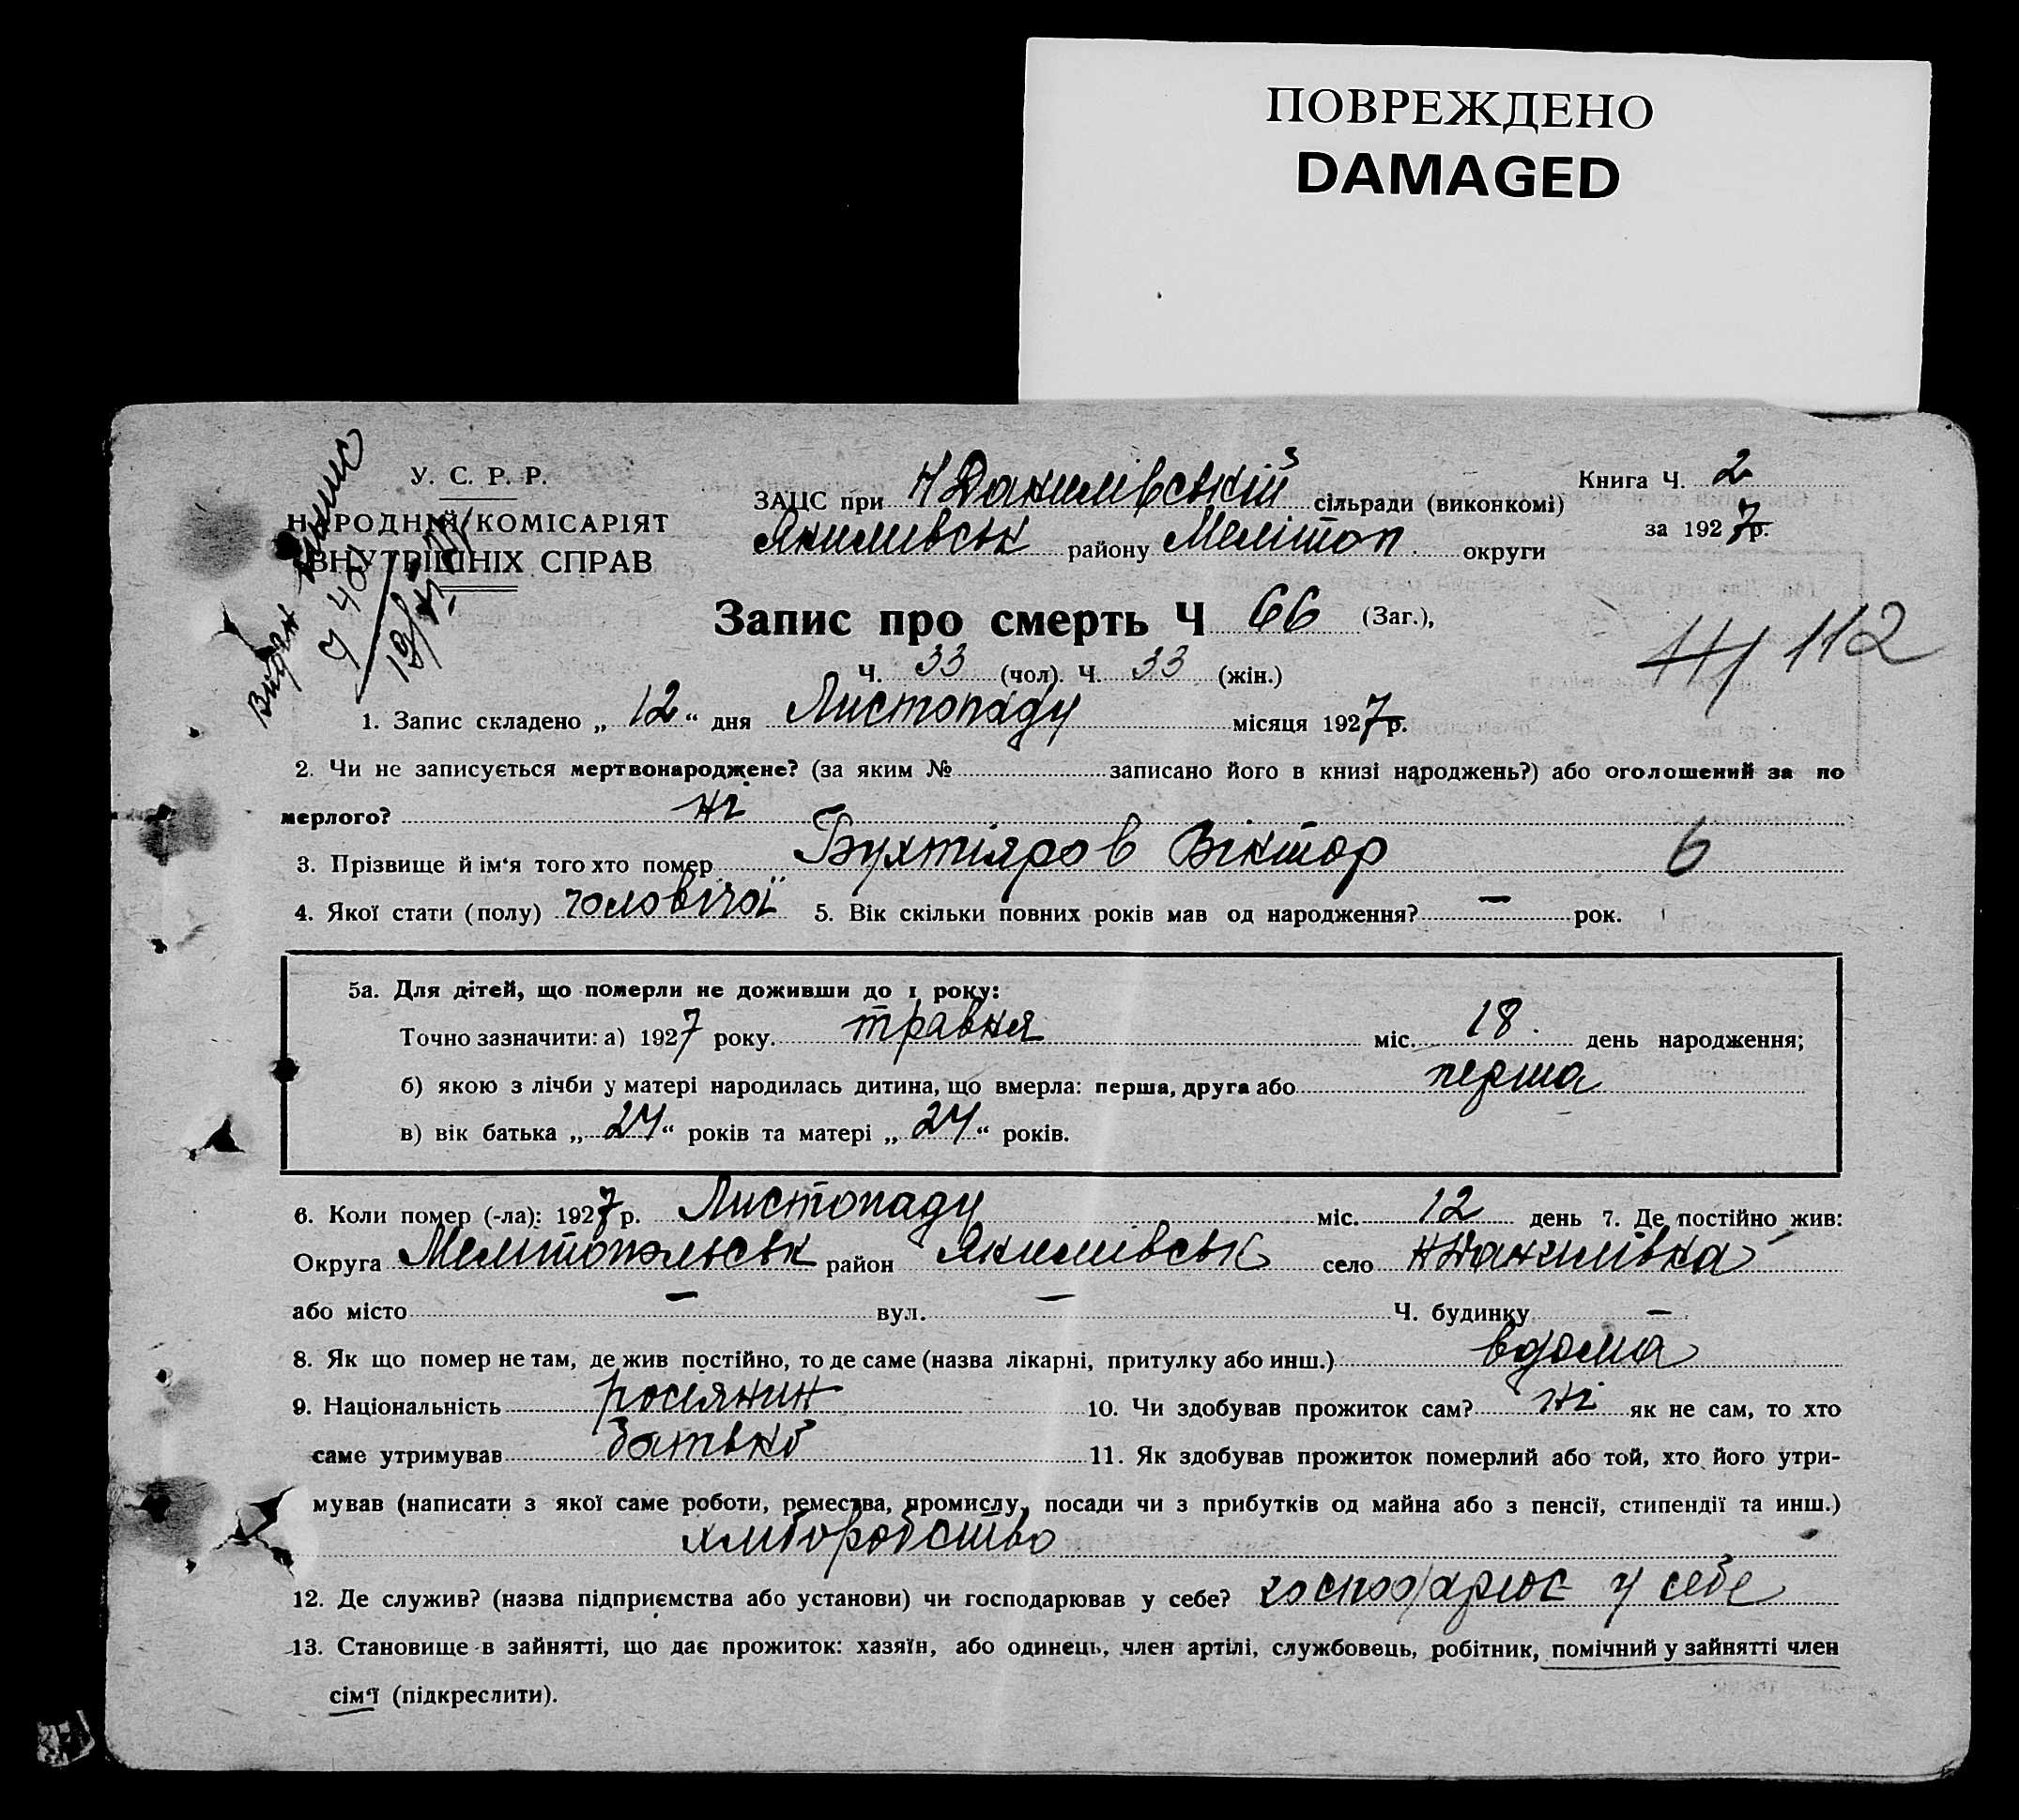 ПОВРЕЖДЕНО
DAMAGED
У. С. Р. Р.
НАРОДНИЙ КОМІСАРІЯТ
ВНУТРІШНІХ СПРАВ
Видан
ЗАЦС при Н Данилівській сільраді (виконкомі)
Якимівськ район у Мелітоп. округи
Книга Ч. 2
за 1927 р.
Запис про смерть Ч 66 (Заг.),
112
Ч. 33 (чол). Ч. 33 (жін.)
1. Запис складено „ 12 “ дня Листопаду місяця 1927 р.
2. Чи не записується мертвонароджене? (за яким № записано його в книзі народжень?) або оголошений за по
мерлого? ні
3. Прізвище й ім'я того хто помер Бухтіяров Віктор 6
4. Якої стати (полу) чоловічої 5. Вік скільки повних років мав од народження? — рок.
5а. Для дітей, що померли не доживши до 1 року:
Точно зазначити: а) 1927 року. травня міс. 18. день народження;
б) якою з лічби у матері народилась дитина, що вмерла: перша, друга або перша
в) вік батька „ 24 “ років та матері „ 24 “ років.
6. Коли помер (-ла): 1927 р. Листопаду міс. 12 день 7. Де постійно жив:
Округа Мелітопольськ район Якимівськ село Н Данилівка
або місто — вул. — Ч. будинку —
8. Як що помер не там, де жив постійно, то де саме (назва лікарні, притулку або инш.) вдома
9. Національність росіянин 10. Чи здобував прожиток сам? ні як не сам, то хто
саме утримував батько 11. Як здобував прожиток померлий або той, хто його утри-
мував (написати з якої саме роботи, ремества, промислу, посади чи з прибутків од майна або з пенсії, стипендії та инш.)
хліборобство
12. Де служив? (назва підприємства або установи) чи господарював у себе? господарює у себе
13. Становище в зайнятті, що дає прожиток: хазяїн, або одинець, член артілі, службовець, робітник, помічний у зайнятті член
сім'ї (підкреслити).